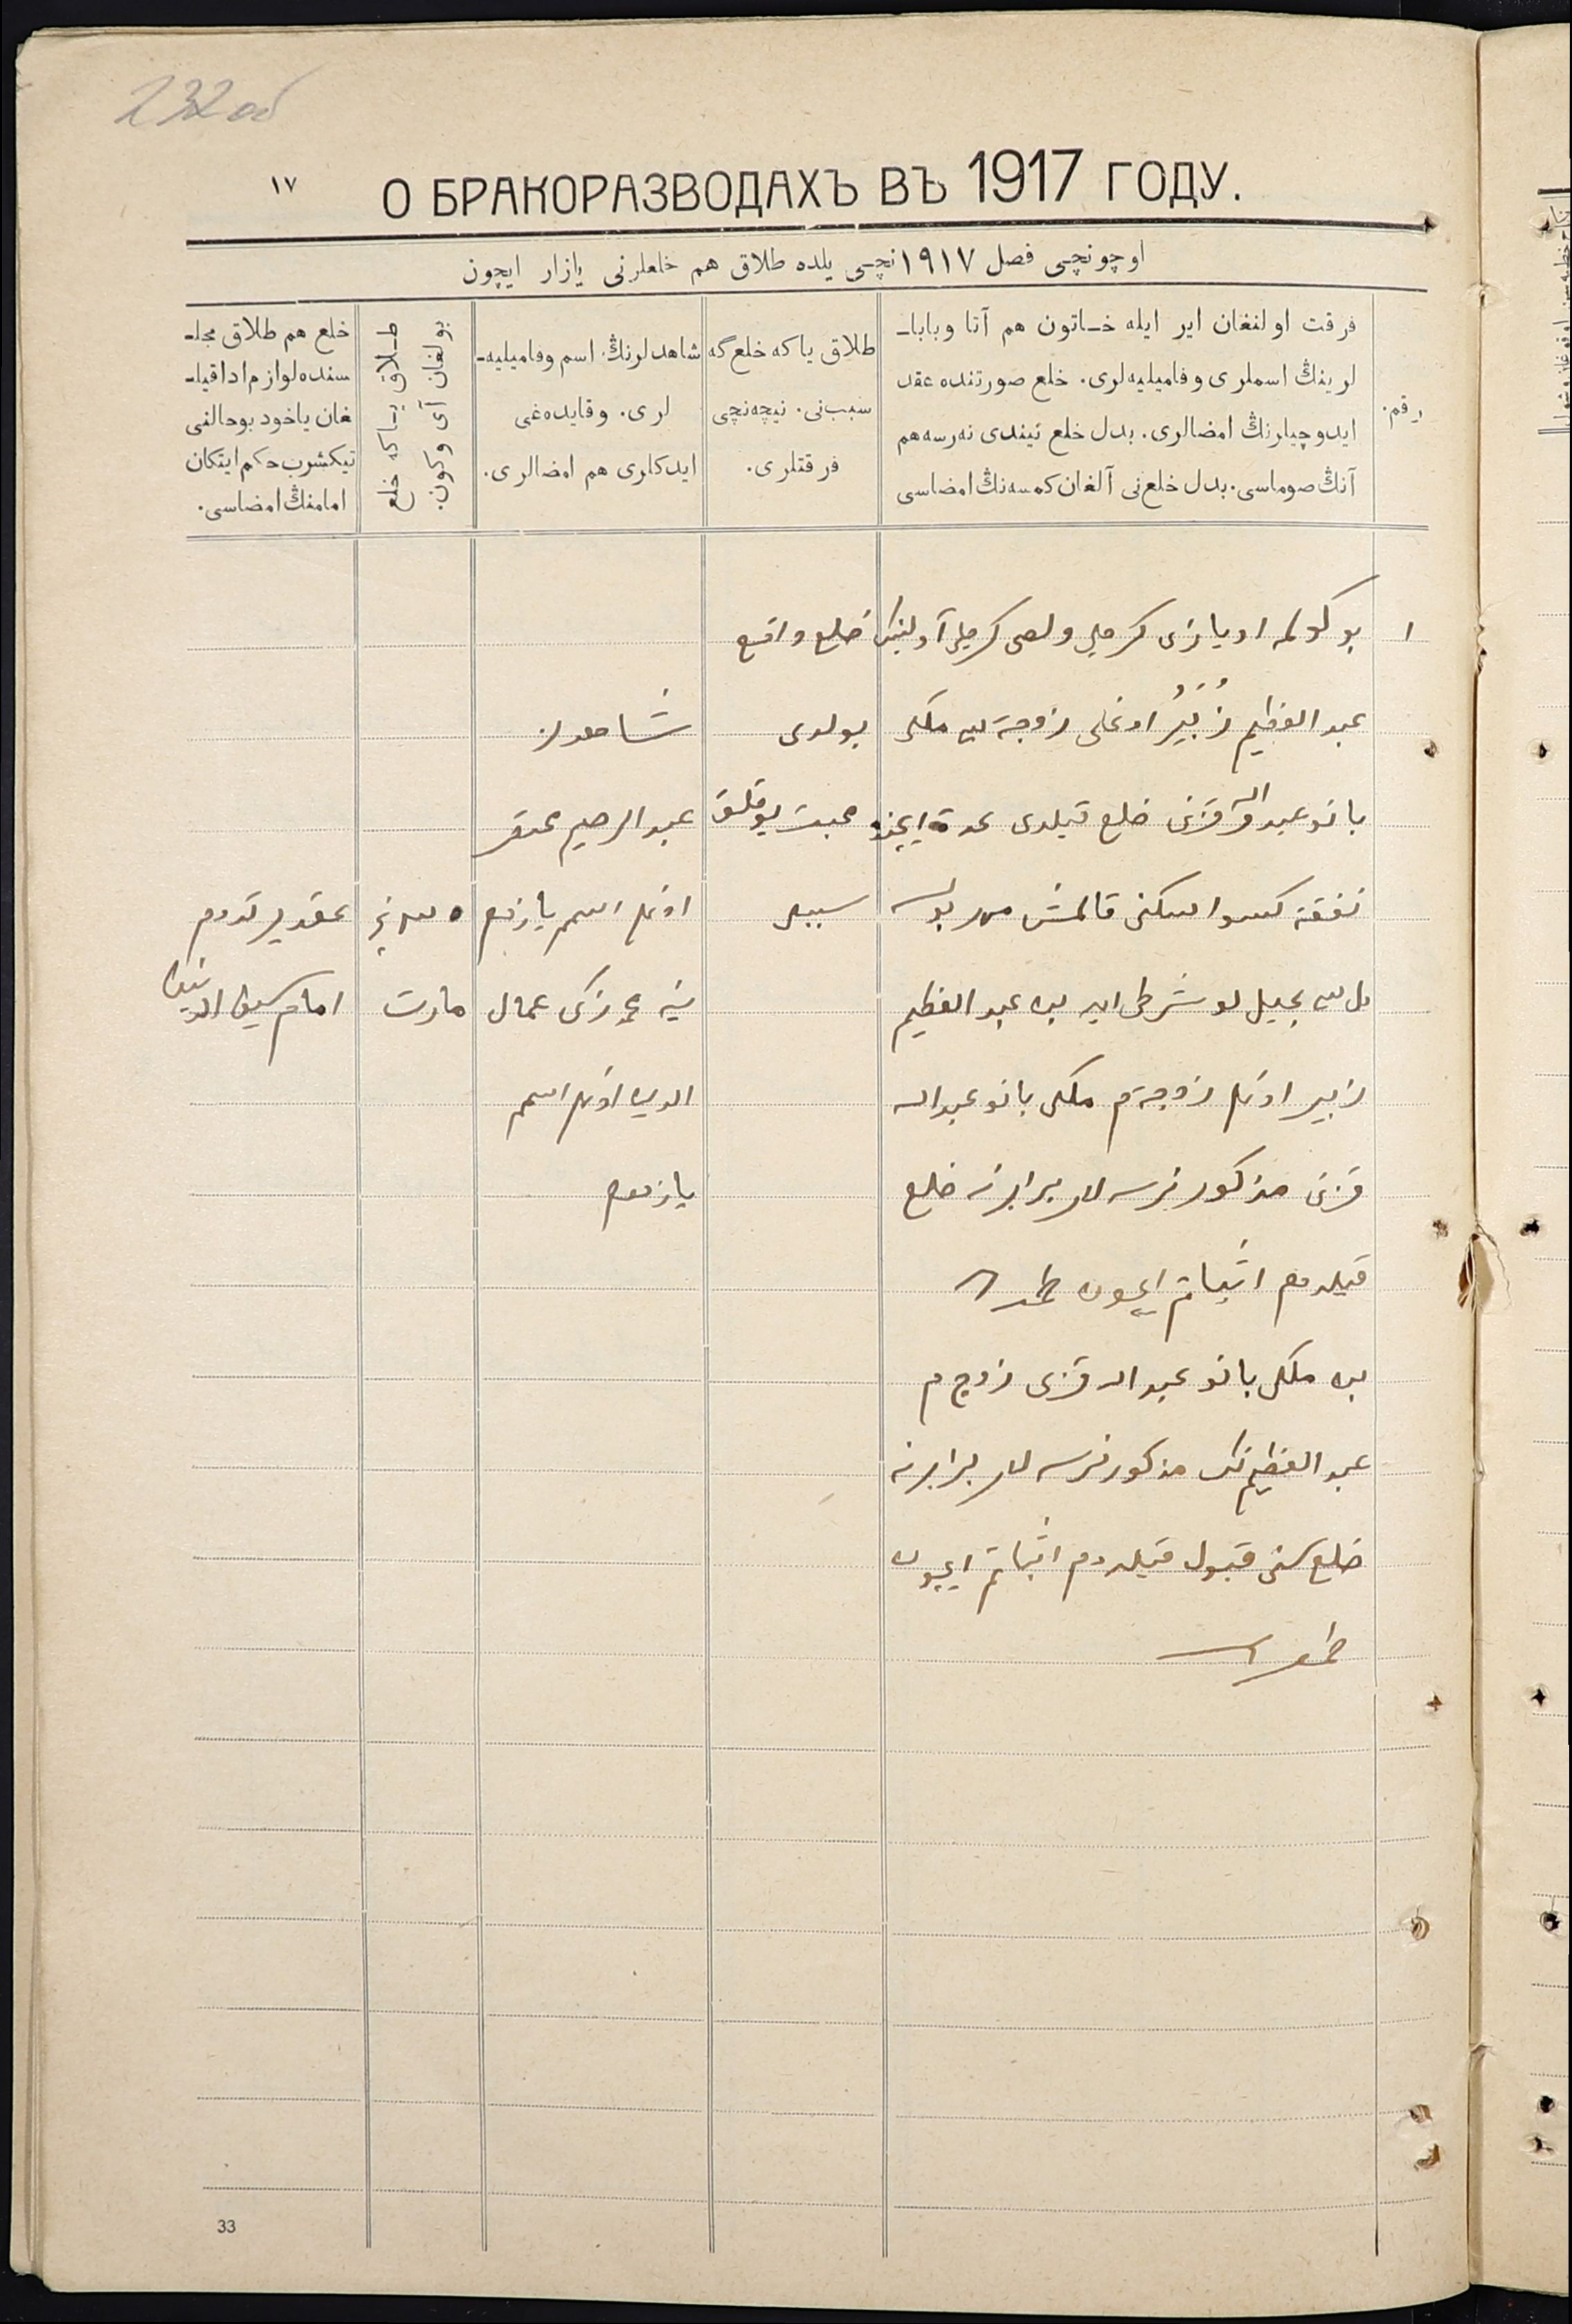 232 об
О БРАКОРАЗВОДАХЪ ВЪ 1917 ГОДУ.
١٧
اوچونچی فصل ١٩١٧ نچی یلده طلاق هم خلعلرنی یازار ایچون
رقم.
فرقت اولنغان ایر ایله خاتون هم آتا وبابا-
لرینڭ اسملری وفامیلیه‌لری. خلع صورتنده عقد
ایدوچیلرنڭ امضالری. بدل خلع نیندی نه‌رسه هم
آنڭ صوماسی. بدل خلع‌نی آلغان کمسه‌نڭ امضاسی
طلاق یاکه خلع گه
سبب‌نی. نیچه‌نچی
فرقتلری.
شاهدلرنڭ اسم وفامیلیه-
لری. وقایده‌غی
ایدکلری هم امضالری.
طلاق یاکه خلع
بولغان آی وکون.
خلع هم طلاق مجلـ
سنده لوازم ادا قیلـ
غان یاخود بوحالنی
تیکشرب حکم ایتکان
امامنڭ امضاسی.
١
بوکولمه اویازی کرملی ولصی کرملی آولینڭ
عبد العظیم زُبَیْرُ اوغلی زوجة سی ملکی
بانو عبد الله قزنی خلع قیلدی عدة ایچنده
نفقة کسوا سکنی قالمش مهر بوله
زبیر اوغلی زوجة م ملکی بانو عبد الله
قزنی مذکور نرسه لار برابرنه خلع
قیلدم اثباتم ایچون طمغا
من ملکی بانو عبد الله قزی زوج م
عبد العظیم نڭ مذکور نرسه لار برابرنه
خلع سنی قبول قیلدم اثباتم ایچون
طمغا
خلع واقع
بولدی
محبت یوقلق
سببلی
شاهدلر
عبد الرحیم
اوغلی اسمم یازدم
ینه محمد زکی جمال
الدین اوغلی اسمم
یازدم
٥ نچی
مارت
عقد یوردم
امام سیف الدین
33